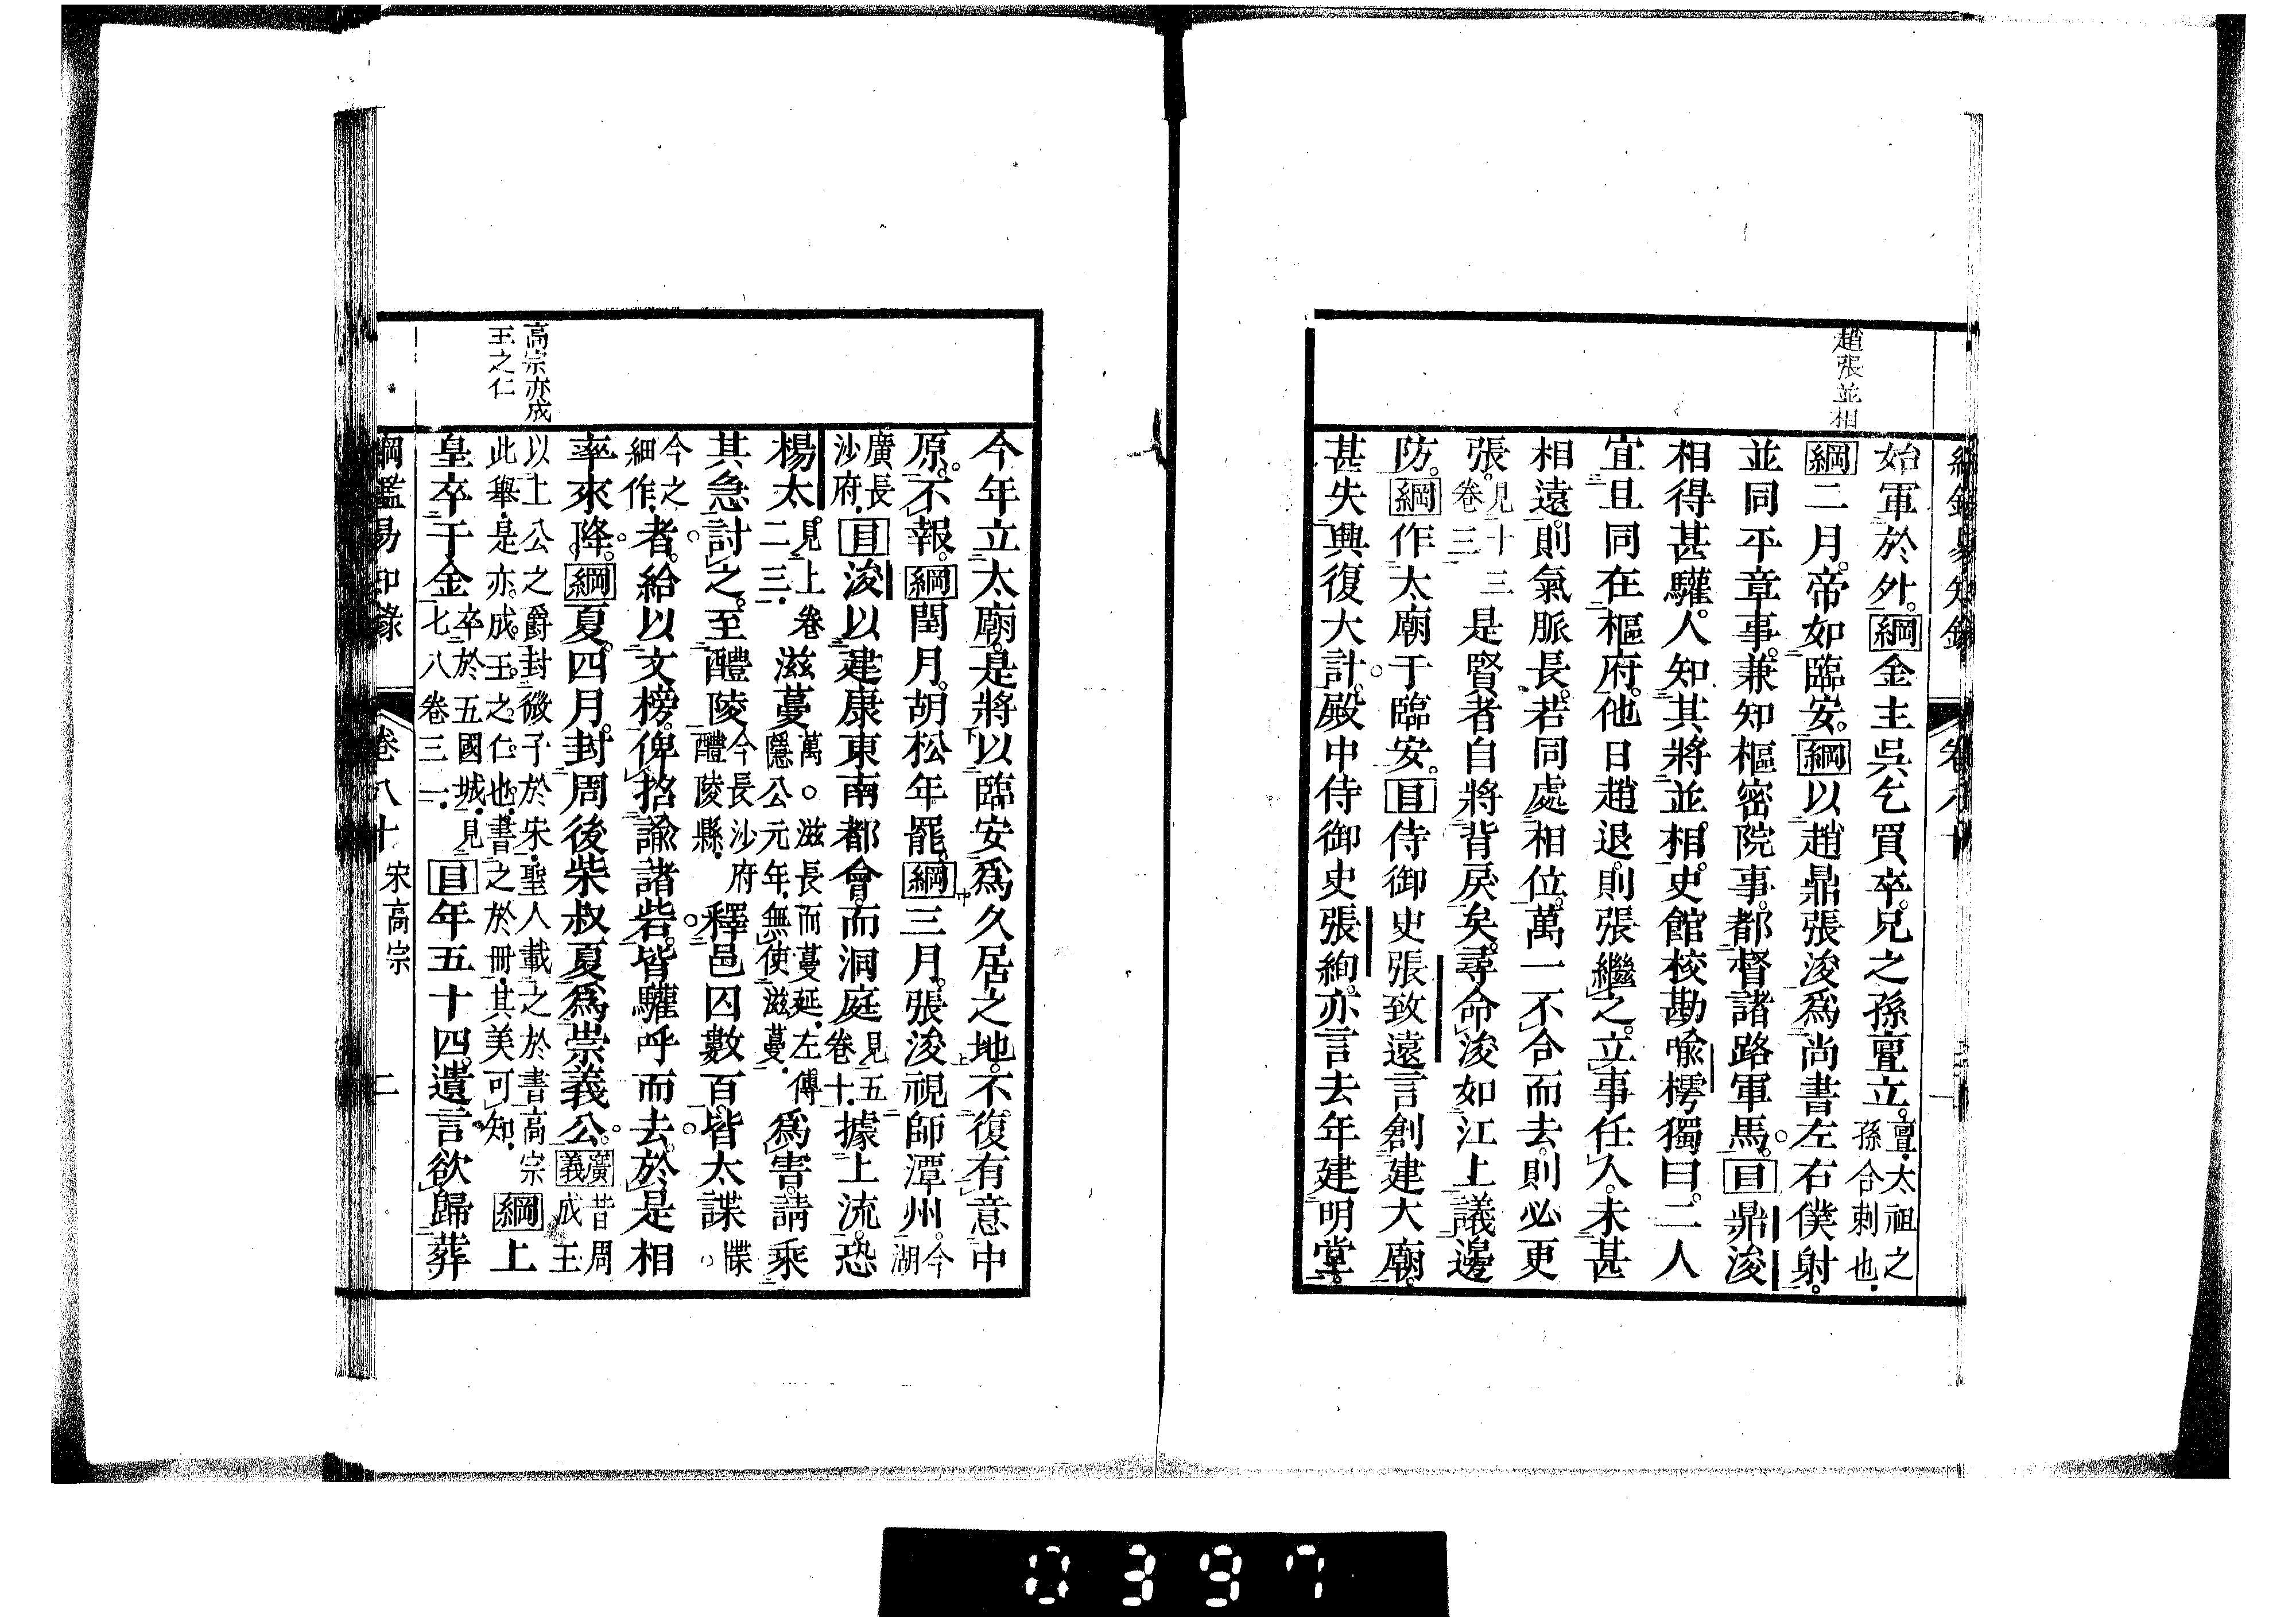 趙張並相
始軍於外。綱金主吳乞買卒。兄之孫亶立。亶太祖之孫合剌也
綱二月。帝如臨安。綱以趙鼎張浚爲尚書左右僕射。
並同平章事。兼知樞密院事。都督諸路軍馬。目鼎浚
相得甚驩。人知其將並相。史館校勘喩樗獨曰。二人
宜且同在樞府。他日趙退。則張繼之。立事任人。未甚
相遠。則氣脈長。若同處相位。萬一不合而去。則必更
張。見十三卷三三是賢者自將背戾矣。尋命浚如江上議邊
防。綱作太廟于臨安。目侍御史張致遠言創建大廟。
甚失興復大計。殿中侍御史張絢。亦言去年建明堂。
今年立太廟。是將以臨安爲久居之地。不復有意中
原。不報。綱閏月。胡松年罷。綱三月。張浚視師潭州。今湖
廣長沙府目浚以建康東南都會。而洞庭見五卷十據上流。恐
楊太見上卷二三滋蔓萬○滋長而蔓延左傳隱公元年無使滋蔓爲害。請乘
其急討之。至醴陵今長沙府醴陵縣釋邑囚數百。皆太諜牒○
今之細作者。給以文榜。俾招諭諸砦。皆驩呼而去。於是相
率來降。綱夏。四月。封周後柴叔夏爲崇義公。廣義昔周成王
高宗亦成王之仁
以上公之爵封微子於宋聖人載之於書高宗此舉是亦成王之仁也書之於冊其美可知綱上
皇卒于金卒於五國城見七八卷三一目年五十四。遺言欲歸葬
綱鑑易知錄 卷八十 宋高宗 二
0397